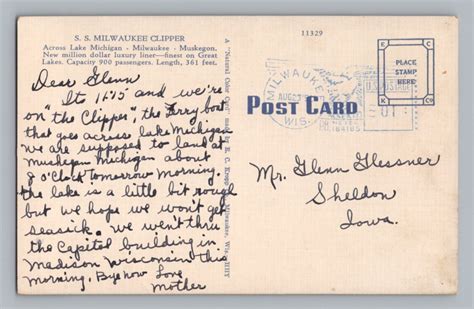 S. S. MILWAUKEE CLIPPER
Across Lake Michigan - Milwaukee - Muskegon.
New million dollar luxury liner—finest on Great
Lakes. Capacity 900 passengers. Length, 361 feet.
Dear Glenn
Its 11:15 and we're
on "the Clipper", the ferry boat
that goes across lake Michigan
we are supposed to land at
Muskegan Michigan about
o'clock tomorrow morning.
the lake is a little bit rough
but we hope we won't get
seasick. we went thru
the Capitol building in
Madison Wisconsin this
morning. Bye now Love
Mother
A "Natural Color" Card
E. C. Kropp Milwaukee, Wis.
11329
MILWAUKEE
AUG
WIS.
POST CARD
E C
PLACE
STAMP
HERE
K Co
Mr. Glenn Glessner
Sheldon
Iowa.